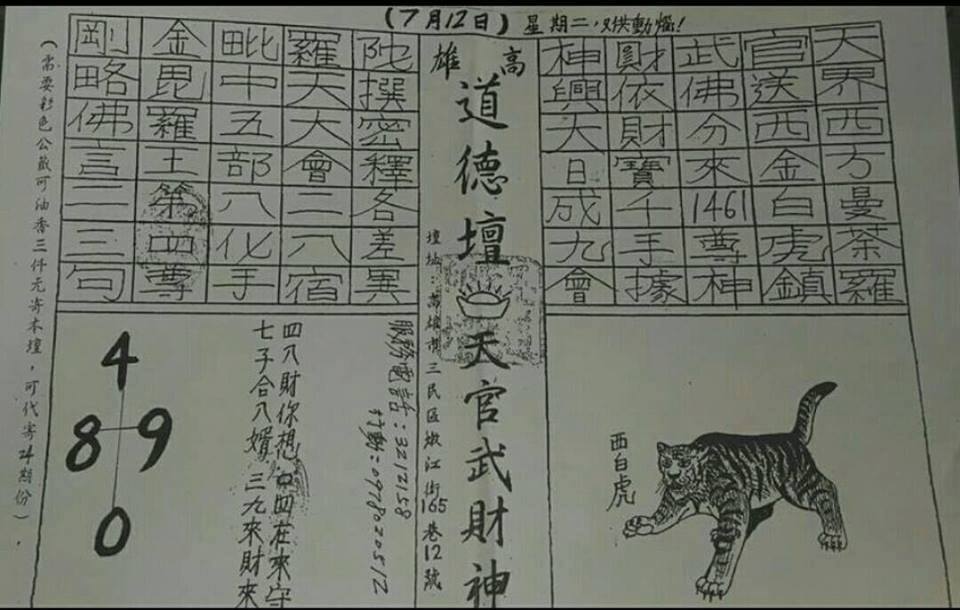 (7月12日)星期二,只供動腦!
天界西方曼荼羅
官送西金白虎鎮
武佛分來1461尊神
財依財寶千手據
神興大日成九會
高雄
道德壇 天官武財神
壇址:高雄市三民區嫩江街165巷12號
陀撰密釋各差異
羅天大會二八宿
毗中五部八化手
金毘羅王第四尊
剛略佛言二三句
西白虎
服務電話:3212158
行動:0978020512
四八財你想 四在來守
七子合八婿 三九來財來
4
8 9
0
(需要彩色公籤可油香三仟元寄本壇,可代寄24期份)